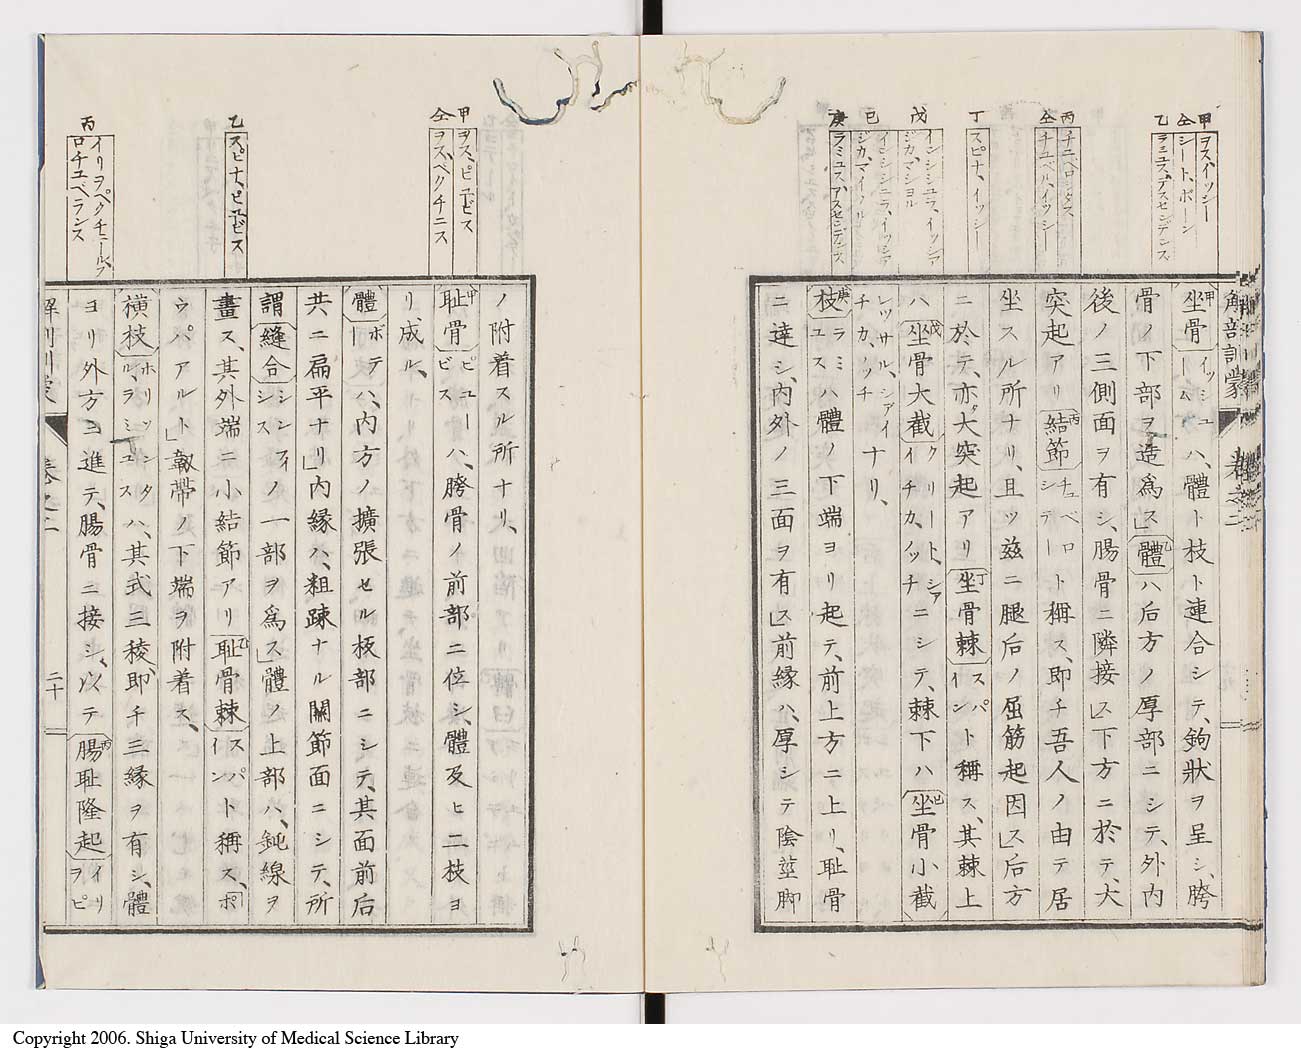 甲 ヲス、イッシー
仝 シート、ボーン
乙 ラミユス、デスセンデンス
丙 チユベロシタス
仝 チユベル、イッシー
丁 スピナ、イッシー
戊 インシシユラ、イッシア
ジカ、マショル
己 インシシユラ、イッシア
ジカ、マイノル
庚 ラミユス、アスセンデンス
解剖訓蒙 卷之二
坐骨イッシユームハ、體ト枝ト連合シテ、鉤狀ヲ呈シ、胯
骨ノ下部ヲ造爲ス」體ハ后方ノ厚部ニシテ、外内
後ノ三側面ヲ有シ、腸骨ニ隣接ス」下方ニ於テ、大
突起アリ結節チユベロシテートト稱ス、即チ吾人ノ由テ居
坐スル所ナリ、且ツ茲ニ腿后ノ屈筋起因ス」后方
ニ於テ、亦大突起アリ坐骨棘スパインント稱ス、其棘上
ハ坐骨大截クリート、シアイチカ、ノッチニシテ、棘下ハ坐骨小截
レッサル、シアイチカ、ノッチナリ、
枝ラミユスハ體ノ下端ヨリ起テ、前上方ニ上リ、耻骨
ニ達シ、内外ノ二面ヲ有ス」前縁ハ、厚シテ陰莖脚
甲 ヲス、ピユービス
仝 ヲス、ペクチニス
乙 スピナ、ピユービス
丙 イリヲペクチニール、プ
ロチユベランス
ノ附着スル所ナリ、
耻骨ピユービスハ、胯骨ノ前部ニ位シ、體及ヒ二枝ヨ
リ成ル、
體ボデーハ、内方ノ擴張セル板部ニシテ、其面前后
共ニ扁平ナリ」内縁ハ、粗踈ナル關節面ニシテ、所
謂縫合シンフイシスノ一部ヲ爲ス」體ノ上部ハ、鈍線ヲ
畫ス、其外端ニ小結節アリ耻骨棘スパインント稱ス、ポ
ウパアルト」韌帶ノ下端ヲ附着ス、
橫枝ホリソンタル、ラミユスハ、其式三稜、即チ三縁ヲ有シ、體
ヨリ外方ニ進テ、腸骨ニ接シ、以テ腸耻隆起イリヲピ
解剖訓蒙 卷之二 二十
Copyright 2006. Shiga University of Medical Science Library